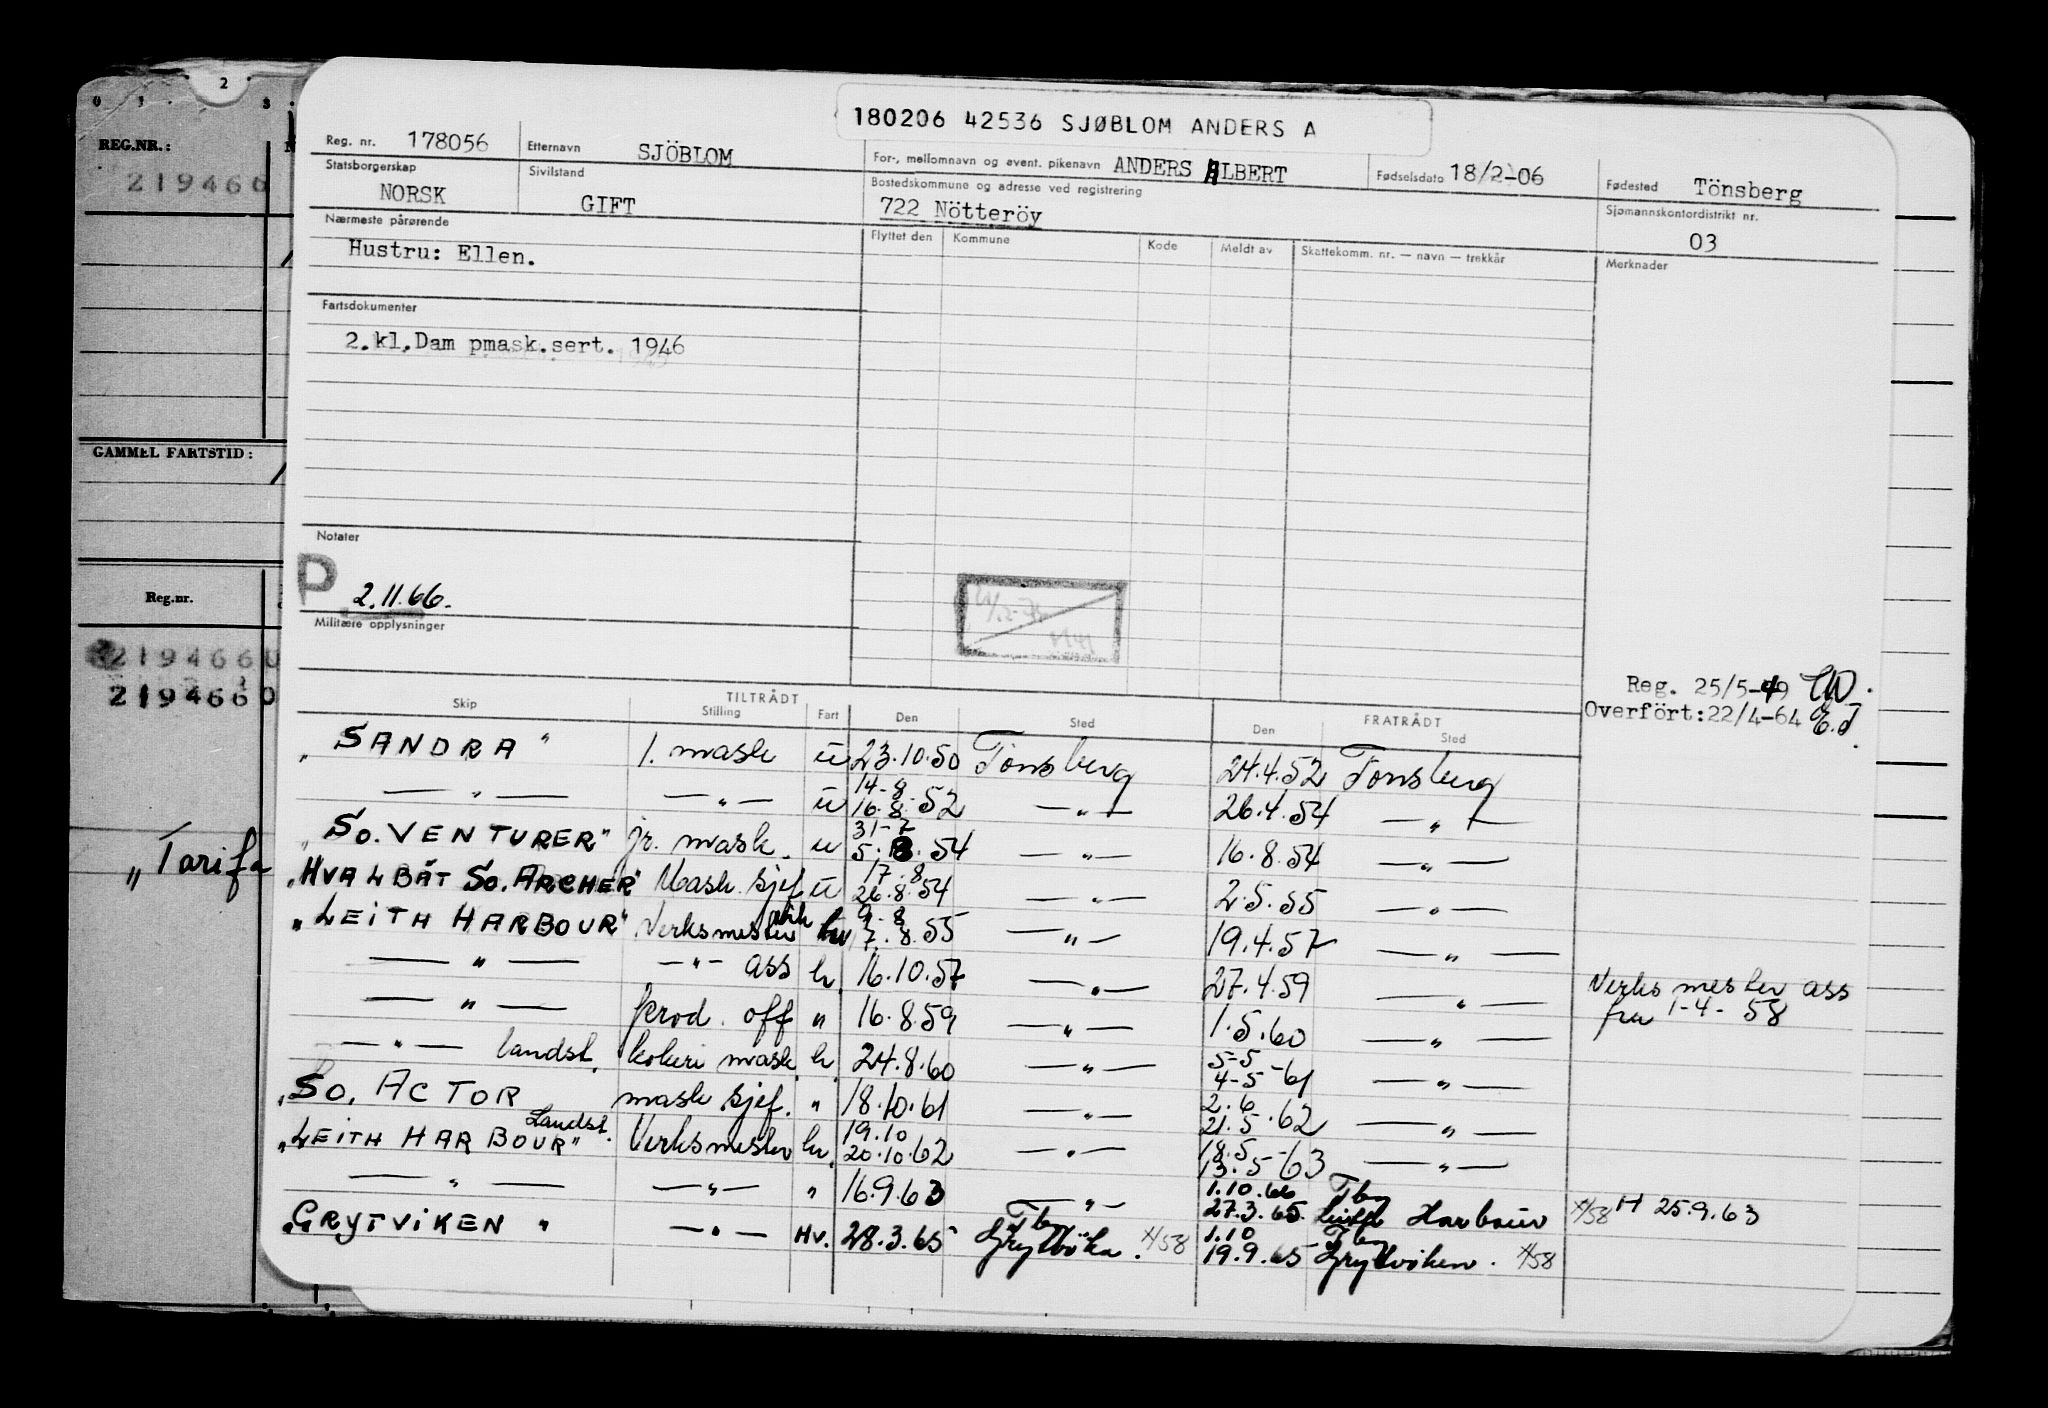 2
0 1 3
REG.NR.:
219466
GAMMEL FARTSTID:
Reg.nr.
219466U
219466 0
"Tarifa
180206 42536 SJØBLOM ANDERS A
Reg. nr. 178056 Etternavn SJÖBLOM For-, mellomnavn og event. pikenavn ANDERS ALBERT Fødselsdato 18/2-06 Fødested Tönsberg
Statsborgerskap NORSK Sivilstand GIFT Bostedskommune og adresse ved registrering 722 Nötteröy Sjømannskontordistrikt nr. 03
Nærmeste pårørende Flyttet den Kommune Kode Meldt av Skattekomm. nr. — navn — trekkår Merknader
Hustru: Ellen.
Fartsdokumenter
2.kl.Dam pmask.sert. 1946
Notater
P 2.11.66.
Militære opplysninger
Reg. 25/5-49
Overfört:22/4-64 E.J.
TILTRÅDT FRATRÅDT
Skip Stilling Fart Den Sted Den Sted
"SANDRA" 1. mask u 23.10.50 Tönsberg 24.4.52 Tönsberg
— " — — " — u 14-8 16.8.52 — " — 26.4.54 — " —
"SO. VENTURER" jr. mask. u 31-7 5.8.54 — " — 16.8.54 — " —
"HVALBÅT SO. ARCHER" Mask. sjef u 17.8 26.8.54 — " — 2.5.55 — " —
"LEITH HARBOUR" Verksmester hv 9-8 7.8.55 — " — 19.4.57 — " —
— " — — " — ass h. 16.10.57 — " — 27.4.59 — " — Verksmester ass
fra 1-4-58
— " — prod. off " 16.8.59 — " — 1.5.60 — " —
— " — landst. kokeri mask. h. 24.8.60 — " — 5-5 4-5-61 — " —
"SO. ACTOR mask sjef. " 18.10.61 — " — 2.6 21.5.62 — " —
"LEITH HARBOUR" Landst. Verksmester hv. 19.10 20.10.62 — " — 18.5 13.5-63 — " —
— " — — " — " 16.9.63 — " — 1.10.66 27.3.65 Tbg Leith Harbour x/58 H 25.9.63
"GRYTVIKEN" — " — HV. 28.3.65 Tbg Grytvika. x/58 1.10 19.9.65 Tbg Grytviken. x/58